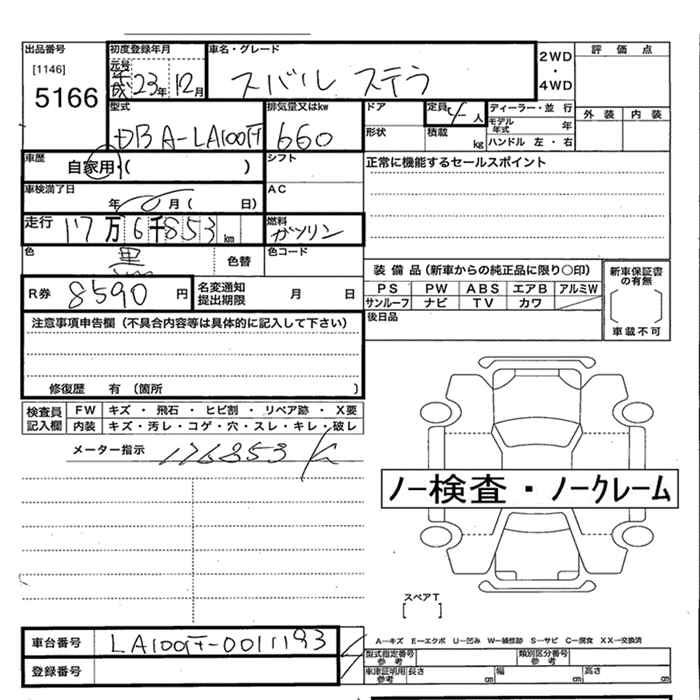 出品番号 初度登録年月 車名・グレード 2WD・4WD 評価点
[1146] 元号 平成 23年 12月 スバル ステラ
5166
型式 排気量又はkw ドア 定員 人 ディーラー・並行 外装 内装
DBA-LA100F 660 モデル年式 年
形状 積載 kg ハンドル 左・右
車歴 自家用・( ) シフト 正常に機能するセールスポイント
車検満了日 年 月( 日) AC
走行 17万6千853km 燃料 ガソリン
色 黒 色替 色コード
装備品(新車からの純正品に限り○印) 新車保証書の有無
R券 8590円 名変通知提出期限 月 日 PS PW ABS エアB アルミW
サンルーフ ナビ TV カワ 車載不可
注意事項申告欄(不具合内容等は具体的に記入して下さい) 後日品
修復歴 有 (箇所 )
検査員記入欄 FW キズ・飛石・ヒビ割・リペア跡・X要
内装 キズ・汚レ・コゲ・穴・スレ・キレ・破レ
メーター指示 176853 K
ノー検査・ノークレーム
スペアT
[ ]
車台番号 LA100F-0011193 A-キズ E-エクボ U-凹み W-補修跡 S-サビ C-腐食 XX-交換済
型式指定番号 参考 類別区分番号 参考
登録番号 車庫証明用 参考 長さ cm 幅 cm 高さ cm